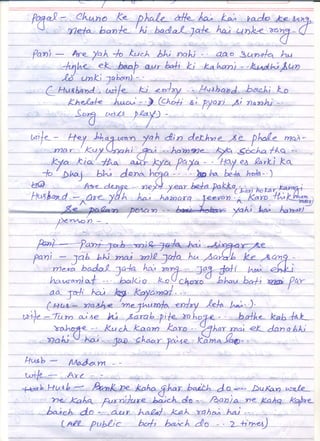 Pagal - Chuno ke phale atte hai kai vado ke sung
neta bante hi badal jate hai unke rang
Pani - Are yah to kuch bhi nahi ... aao sunata hu
tujhe ek baap aur bati ki kahani - kudhi sun
lo unki jabani -
( Husband, wife ki entry - Husband bachi ko
khelate huai - ) (Choti si pyari si nanhi -
Song play) -
wife - Hey bhagwan yah din dekhne se phale
mar kuy nahi gai - hamne kya socha tha -
kya kia tha aur kya paya - Hay es larki ka
to bhi dena hoga
Are denge - next year beta pakka
Husband - Are yah hai hamara
yahi hai hamari
person - .
Pani - Pani jab mil jata hai singar se
pani - jab bhi mai mil jata hu sarab ke sang -
mera badal jata hai rang - jag jati hai enki
hawaniat - balkio ko choro bhau bati par
aa jati hai kayamat -
( Hus - nashe me jhumta entry leta hai - )
wife - Tum aise hi sarab pite rahoge - bathe kab tak
rahoge - kuch kaam karo - ghar mai ek dana bhi
nahi hai - jao shaar paise kama lao -
Husb - Madam - .
wife - Are - -
Husb - Bank ne kaha ghar baich do - Dukan wale
ne kaha furniture baich do - Bania ne kaha kapre
baich do - aur halat kah rahai hai -
( All public - bati baich do - - 2 times)